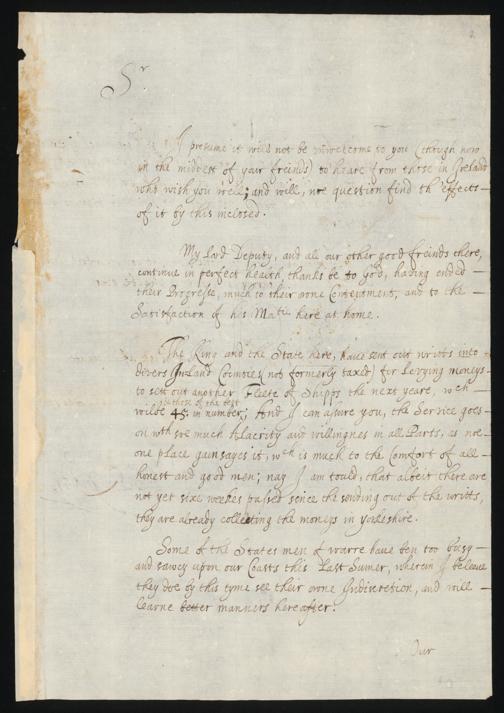 Sr
I presume it will not be unwelcome to you (though now
in the middest of your freinds) to heare from those in Ireland
who wish you well; and will, no question find th' effects
of it by this inclosed.
My Lord Deputy, and all our other good freinds there,
continue in perfect health, thanks be to God, having ended
their Progresse, much to their owne Contentment, and to the
Satisfaction of his Matie here at home.
The King and the State here, have sent out writts into
divers (Inland Counties not formerly taxed) for Levying moneys
to sett out another Fleete of Shipps the next yeare, wch
wilbe 45. in number; And I can assure you, the Service goes
on wth soe much Alacrity and willingnes in all Parts, as noe
one place gainsayes it, wch is much to the Comfort of all
honest and good men; nay I am tould, that albeit there are
not yet sixe weekes passed sence the sending out of the writts,
they are already collecting the moneys in Yorkeshire.
Some of the States men of warre have ben too busy
and sawcy upon our Coasts this Last Sumer, wherein I beleeve
they doe by this tyme see their owne Indiscretion, and will
learne better manners hereafter.
Our